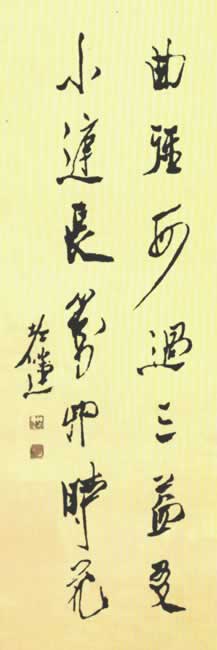 曲徑每過三益友
小庭長對四時花